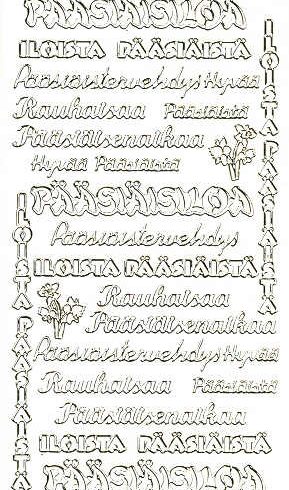 PÄÄSIÄISILOA
ILOISTA PÄÄSIÄISTÄ
Pääsiäistervehdys Hyvää
Rauhaisaa Pääsiäistä
Pääsiäisenaikaa
Hyvää Pääsiäistä
ILOISTA PÄÄSIÄISTÄ
PÄÄSIÄISILOA
Pääsiäistervehdys
ILOISTA PÄÄSIÄISTÄ
Rauhaisaa
Pääsiäisenaikaa
Pääsiäistervehdys Hyvää
Rauhaisaa Pääsiäistä
Pääsiäisenaikaa
ILOISTA PÄÄSIÄISTÄ
PÄÄSIÄISILOA
ILOISTA PÄÄSIÄISTÄ